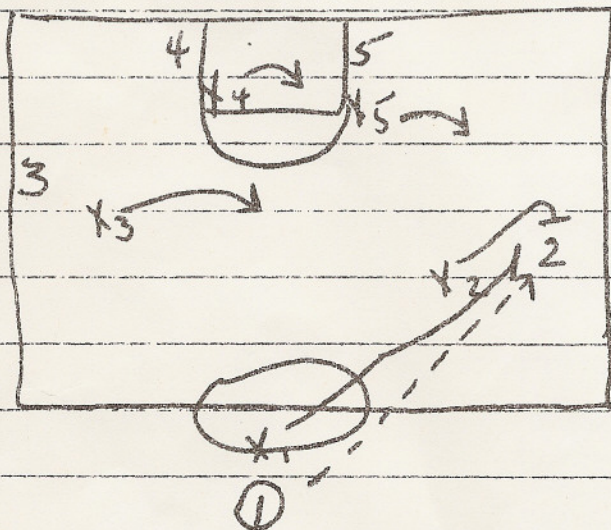 4 5
X4 X5
3
X3
X2 2
X1
1